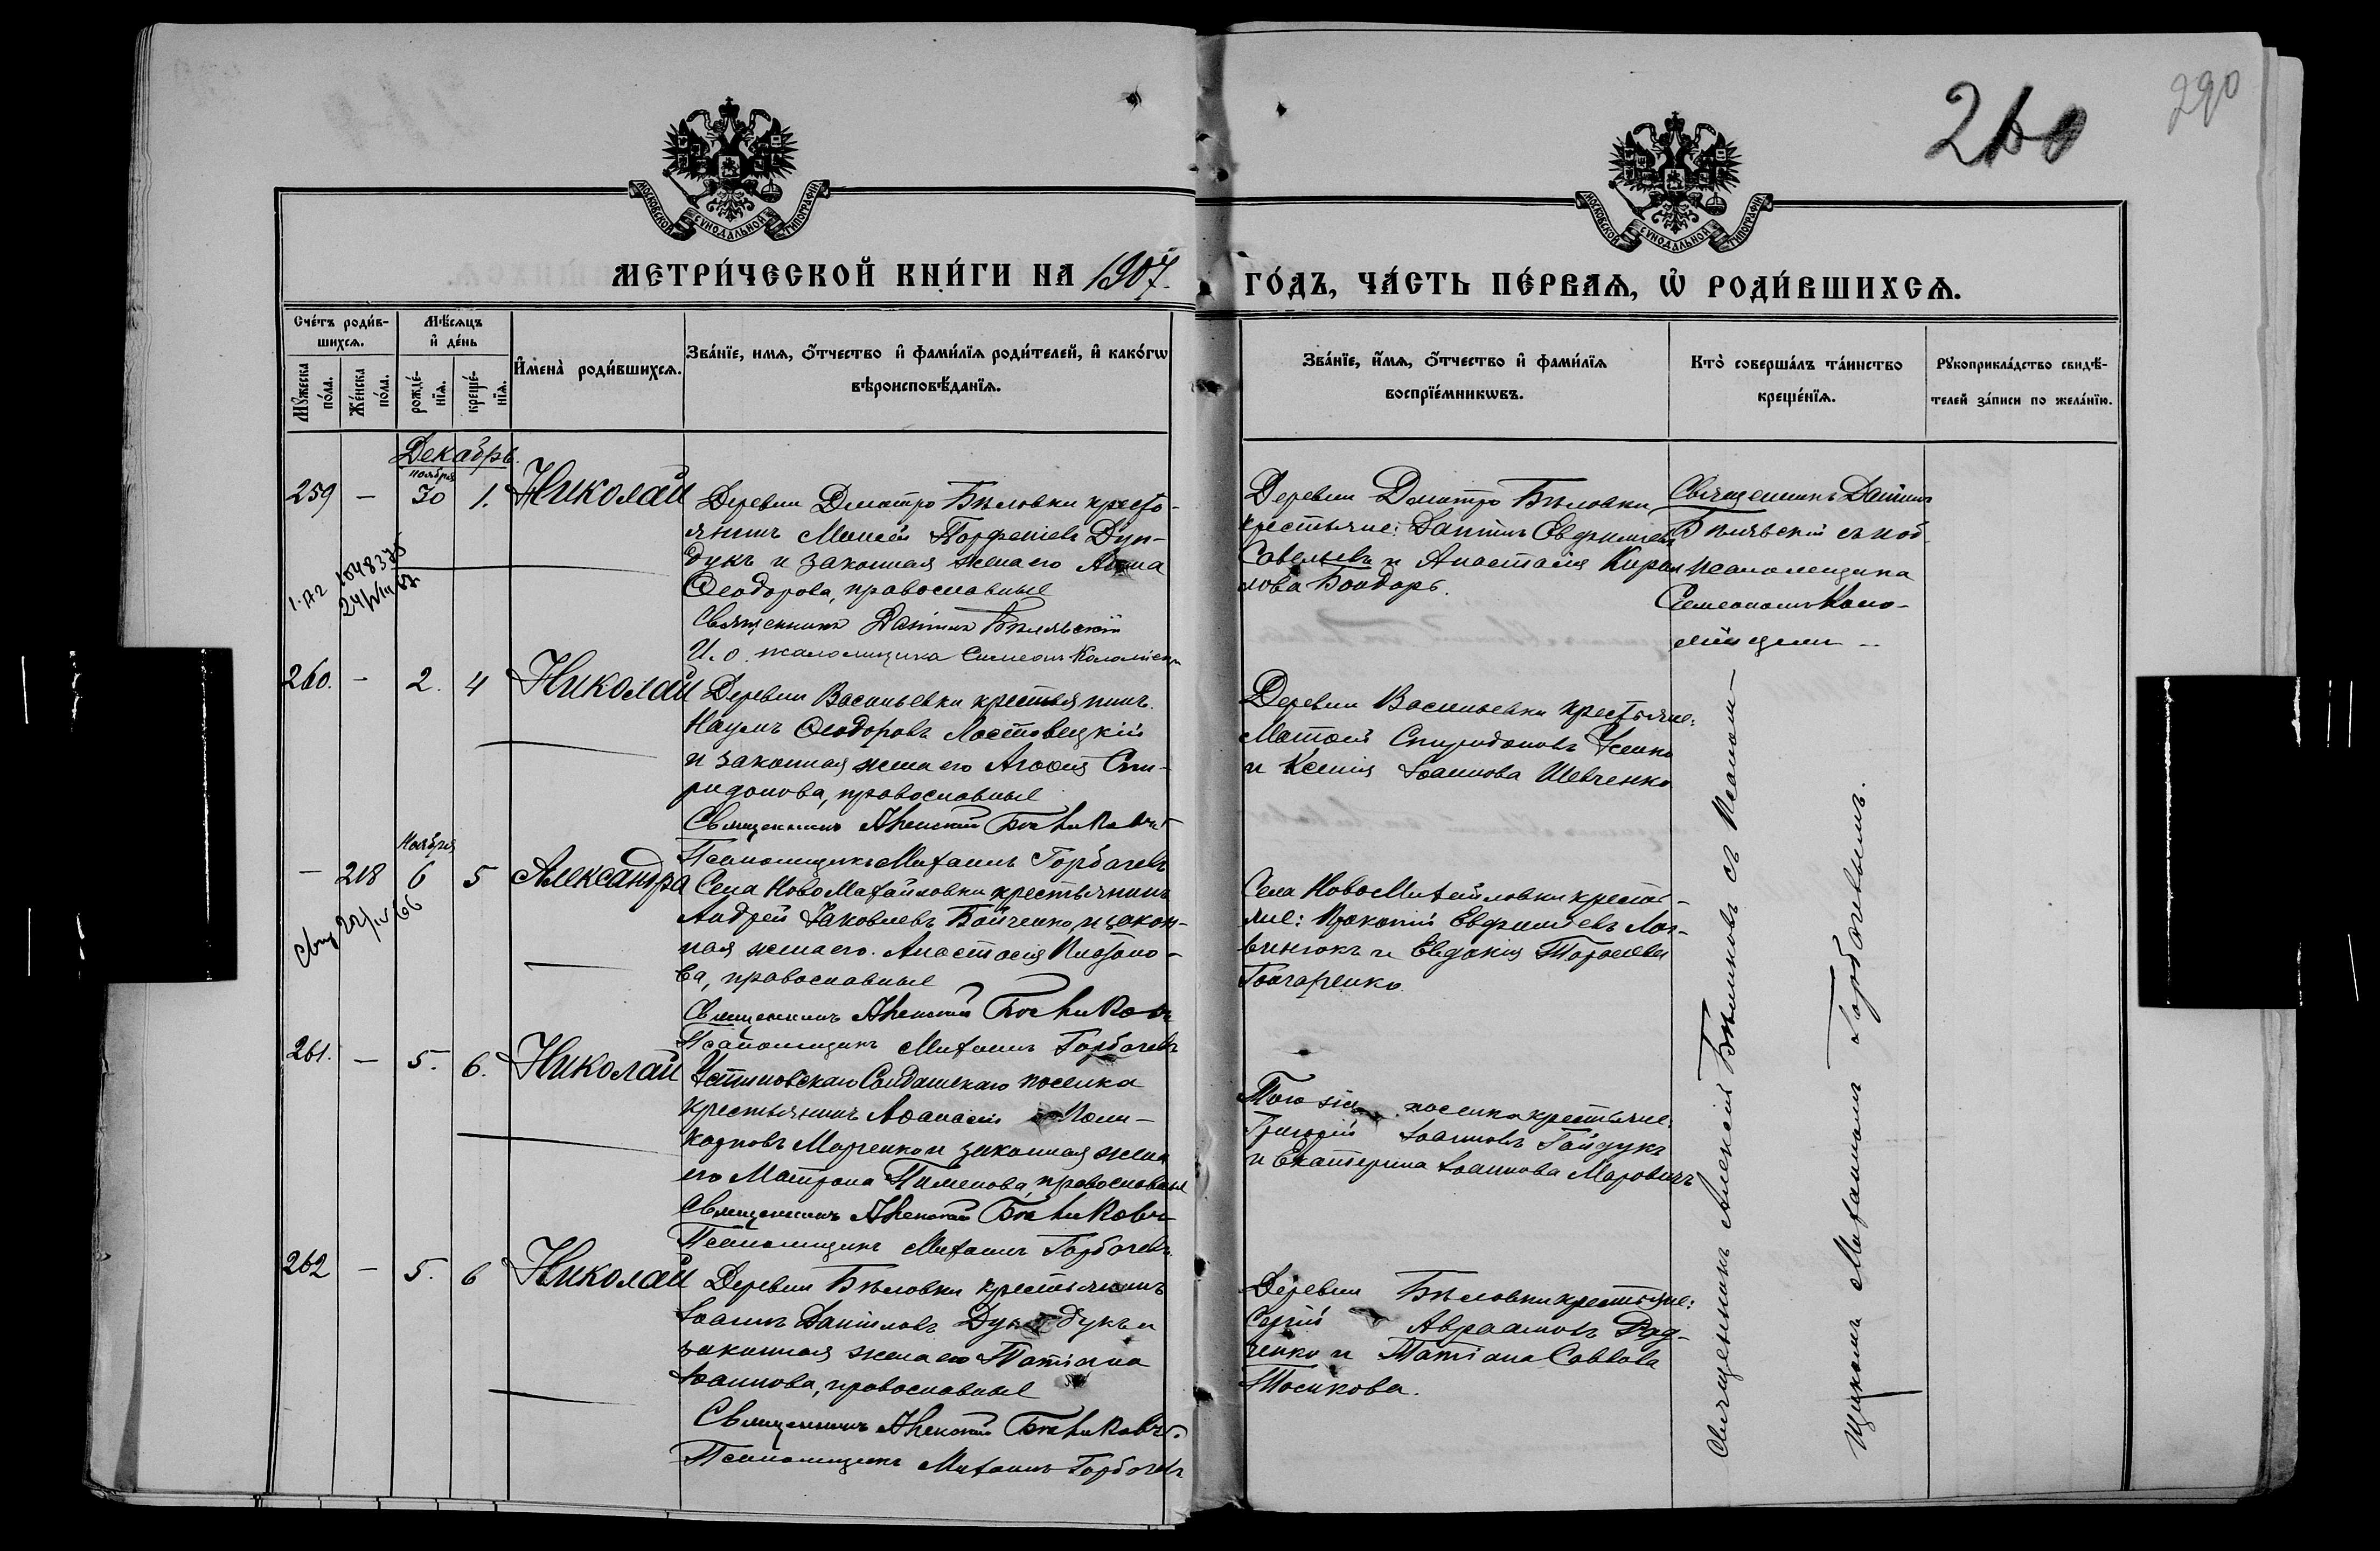 290
260
МОСКОВСКОЙ СѴНОДАЛЬНОЙ ТИПОГРАФІИ
МОСКОВСКОЙ СѴНОДАЛЬНОЙ ТИПОГРАФІИ
МЕТРИ́ЧЕСКОЙ КНИ́ГИ НА 1907.
ГО́ДЪ, ЧА́СТЬ ПЕ́РВАѦ, Ѡ҆ РОДИ́ВШИХСѦ.
Сче́тъ роди́в-
шихсѧ.
Мѣ́сѧцъ
и҆ де́нь
Мꙋ́жеска
по́ла.
Же́нска
по́ла.
рожде́-
нїѧ.
креще́-
нїѧ.
И҆мена̀ роди́вшихсѧ.
Зва́нїе, имѧ, ѻ҆́тчество и҆ фами́лїѧ роди́телей, и҆ како́гѡ
вѣроисповѣ́данїѧ.
Зва́нїе, и҆́мѧ, ѻ҆́тчество и҆ фами́лїѧ
воспрїе́мникѡвъ.
Кто̀ соверша́лъ та́инство
креще́нїѧ.
Рꙋкоприкла́дство свидѣ́-
телей за́писи по жела́нїю.
Декабрь.
ноября
259 — 30 1. Николай
Деревни Дмитро Бѣловки кресть-
янинъ Моисей Парфеніевъ Дун-
дукъ и законная жена его Анна
Ѳеодорова, православные
Священникъ Даніилъ Бѣлявскій
И. о. псаломщика Симеонъ Коломіецъ
1048375
24/VIII
Деревни Дмитро Бѣловки
крестьяне: Даніилъ Евфиміевъ
Савельевъ и Анастасія Кирил
лова Бондарь.
Священникъ Даніилъ
Бѣлявскій съ и об.
псаломщика
Симеономъ Коло-
мійцемъ —
260. — 2. 4 Николай
Деревни Васильевки крестьянинъ
Наумъ Ѳеодоровъ Лостовецкій
и законная жена его Агафія Спи-
ридонова, православные
Священникъ Алексій Бѣликовъ
Псаломщикъ Михаилъ Горбачевъ
Деревни Васильевки крестьяне:
Матѳей Спиридоновъ Усенко
и Ксенія Іоаннова Шевченко
Ноября
— 218 6 5 Александра
22/IV 66
Села НовоМихайловки крестьянинъ
Андрей Іаковлевъ Бойченко и закон-
ная жена его Анастасія Платоно-
ва, православные
Священникъ Алексій Бѣликовъ
Псаломщикъ Михаилъ Горбачевъ
Села НовоМихайловки крестья-
не: Прокопій Евфиміевъ Лог-
винюкъ и Евдокія Тарасіева
Гончаренко
261. — 5. 6. Николай
Устиновскаго Солдатскаго поселка
крестьянинъ Аѳанасій Поли-
карповъ Марченко и законная жена
его Матрона Пименова, православные
Священникъ Алексій Бѣликовъ
Псаломщикъ Михаилъ Горбачевъ
Того же поселка крестьяне:
Григорій Іоанновъ Гайдукъ
и Екатерина Іоаннова Маровичъ
262 — 5. 6 Николай
Деревни Бѣловки крестьянинъ
Іоаннъ Даніиловъ Дундукъ и
законная жена его Татіана
Іоаннова, православные
Священникъ Алексій Бѣликовъ.
Псаломщикъ Михаилъ Горбачевъ
Деревни Бѣловки крестьяне:
Сергій Авраамовъ Рад-
ченко и Татіана Саввова
Тосикова.
Священникъ Алексій Бѣликовъ съ Псалом—
щикомъ Михаиломъ Горбачевымъ.